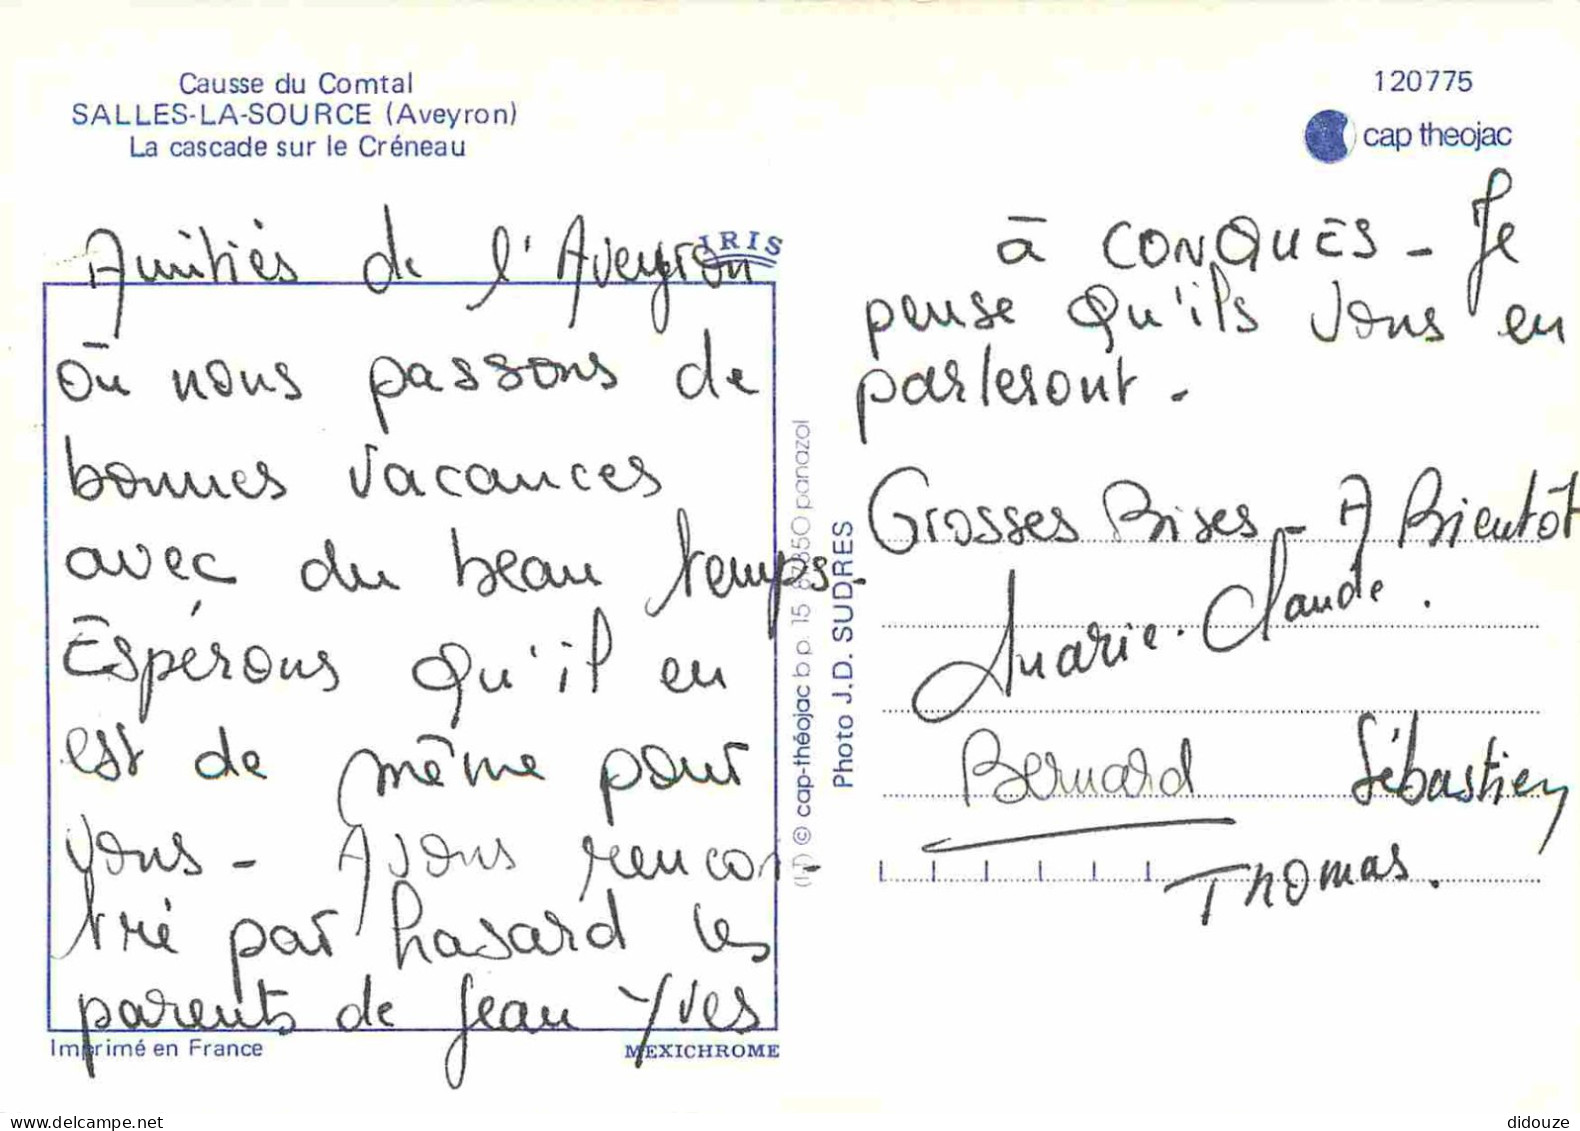 Causse du Comtal
SALLES-LA-SOURCE (Aveyron)
La cascade sur le Créneau
120775
cap theojac
IRIS
Amitiés de l'Aveyron
où nous passons de
bonnes vacances
avec du beau temps.
Espérons qu'il en
est de même pour
vous - Avons rencon-
tré par hasard les
parents de Jean Yves
Imprimé en France
MEXICHROME
© cap-théojac b p. 15 87350 panazol
Photo J.D. SUDRES
à CONQUES - Je
pense qu'ils vous en
parleront -
Grosses Bises - A Bientôt
Marie-Claude.
Bernard Sébastien
Thomas.
didouze